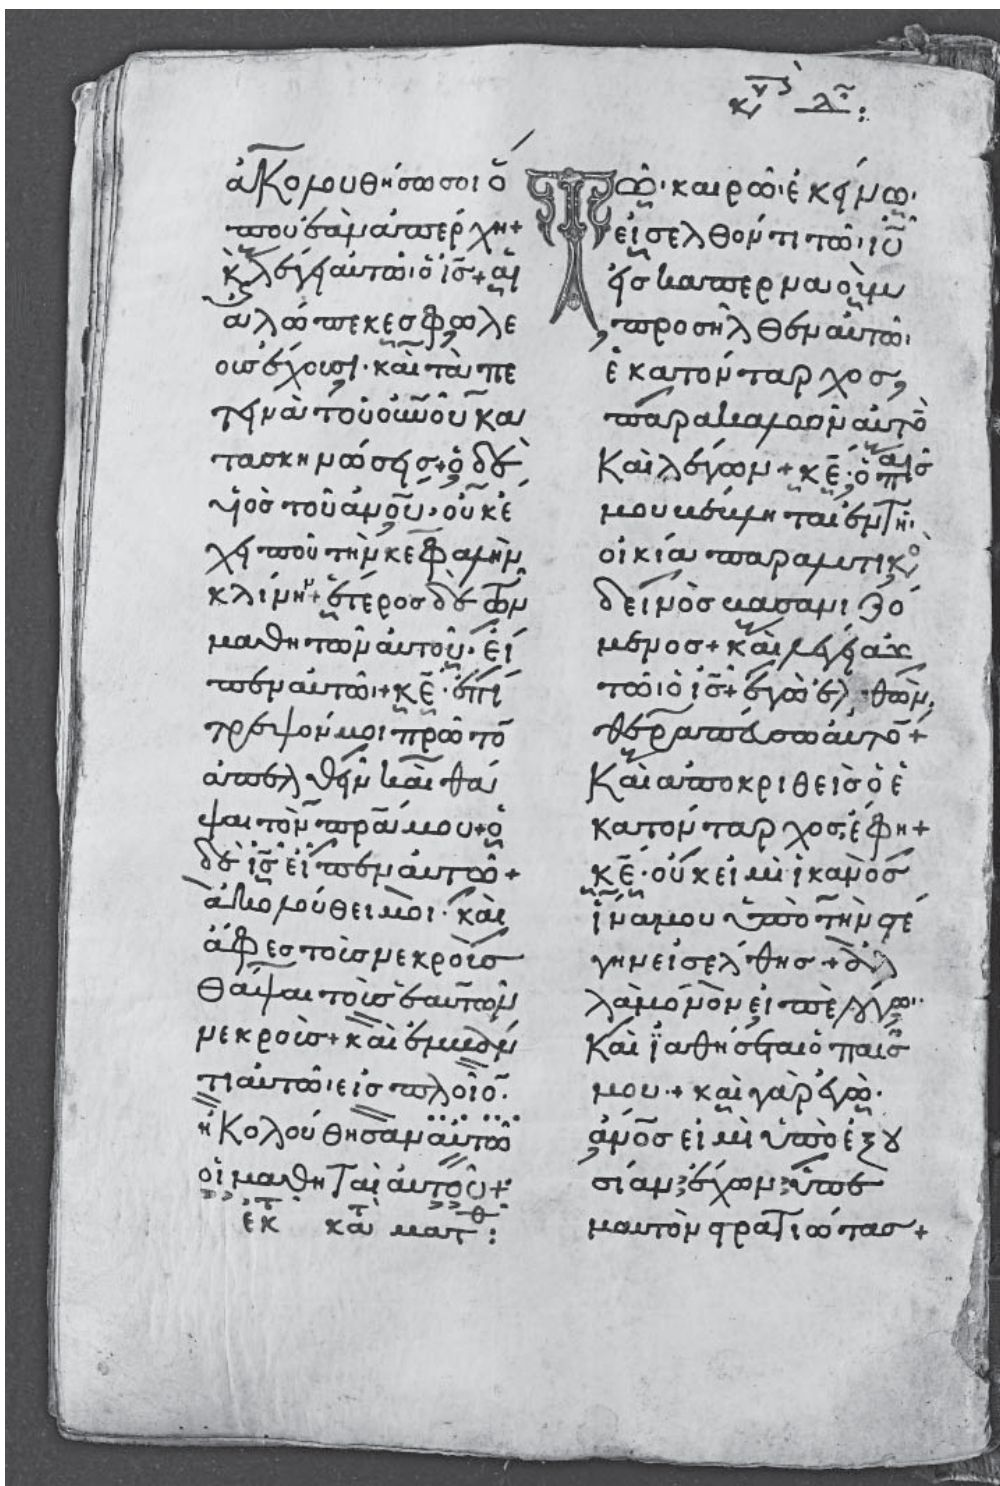 κυ λι:
ἀκολουθήσω σοι ὅ
που ἐὰν ἀπέρχη+
κ λέγει αὐτῶι ὁ ις+ αἱ
ἀλώπεκες φωλε
οὺσ ἔχουσι· καὶ τὰ πε
τεινὰ τοῦ οὐνοῦ κα
τασκηνώσεισ+ ὁ δὲ
υἱὸσ τοῦ ἀνου, οὐκ ἔ
χει ποῦ τὴν κεφαλὴν
κλίνη+ ἕτεροσ δὲ τῶν
μαθητῶν αὐτοῦ· εἶ
πεν αὐτῶι+ κε· ἐπί
τρεψόν μοι πρῶτο
ἀπελθεῖν καὶ θά
ψαι τὸν πρα μου+ ὁ
δὲ ις εἶπεν αὐτῶ+
ἀκολούθει μοι· καὶ
ἄφεσ τοὺσ νεκροὺσ
θάψαι τοὺσ ἑαυτῶν
νεκρούσ+ καὶ ἐμβάν
τι αὐτῶι εἰσ πλοῖο·
ἠκολούθησαν αὐτῶ
οἱ μαθηταὶ αὐτοῦ+
ἐκ τ κατ ματθ:
Τῶι καιρῶι ἐκείνωι·
εἰσελθόντι τῶι ιυ
εἰσ καπερναοὺμ
προσῆλθεν αὐτῶι
ἑκατόνταρχοσ,
παρακαλῶν αὐτὸ
Καὶ λέγων+ κε· ὁ παῖσ
μου βέβληται ἐν τῆ
οἰκία παραλυτικὸ
δεινῶσ βασανιζό
μενοσ+ καὶ λέγει αὐ
τῶ ὁ ις+ ἐγὼ ἐλθὼν,
θεραπεύσω αὐτό+
Καὶ ἀποκριθεὶσ ὁ ἑ
κατόνταρχοσ, ἔφη+
κε· οὐκ εἰμὶ ἱκανὸσ
ἵνα μου ὑπὸ τὴν στέ
γην εἰσέλθησ+ ἀλ
λὰ μόνον εἰπὲ λόγωι·
Καὶ ἰαθήσεται ὁ παῖσ
μου+ καὶ γὰρ ἐγὼ·
ανοσ εἰμὶ ὑπὸ ἐξου
σίαν, ἔχων ὑπ ἐ
μαυτὸν στρατιώτασ+